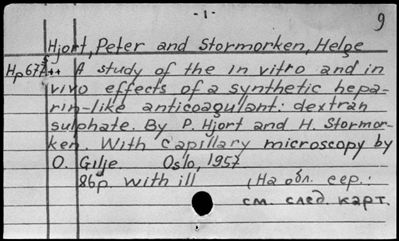 -1-
9
Hjort, Peter and Stormorken, Helge
A study of the in vitro and in
vivo effects of a synthetic hepa-
rin-like anticoagulant: dextran
sulphate. By P. Hjort and H. Stormor-
ken. With capillary microscopy by
O. Gilje. Oslo, 1957
86p. with ill (На обл. сер.:
см. след. карт.